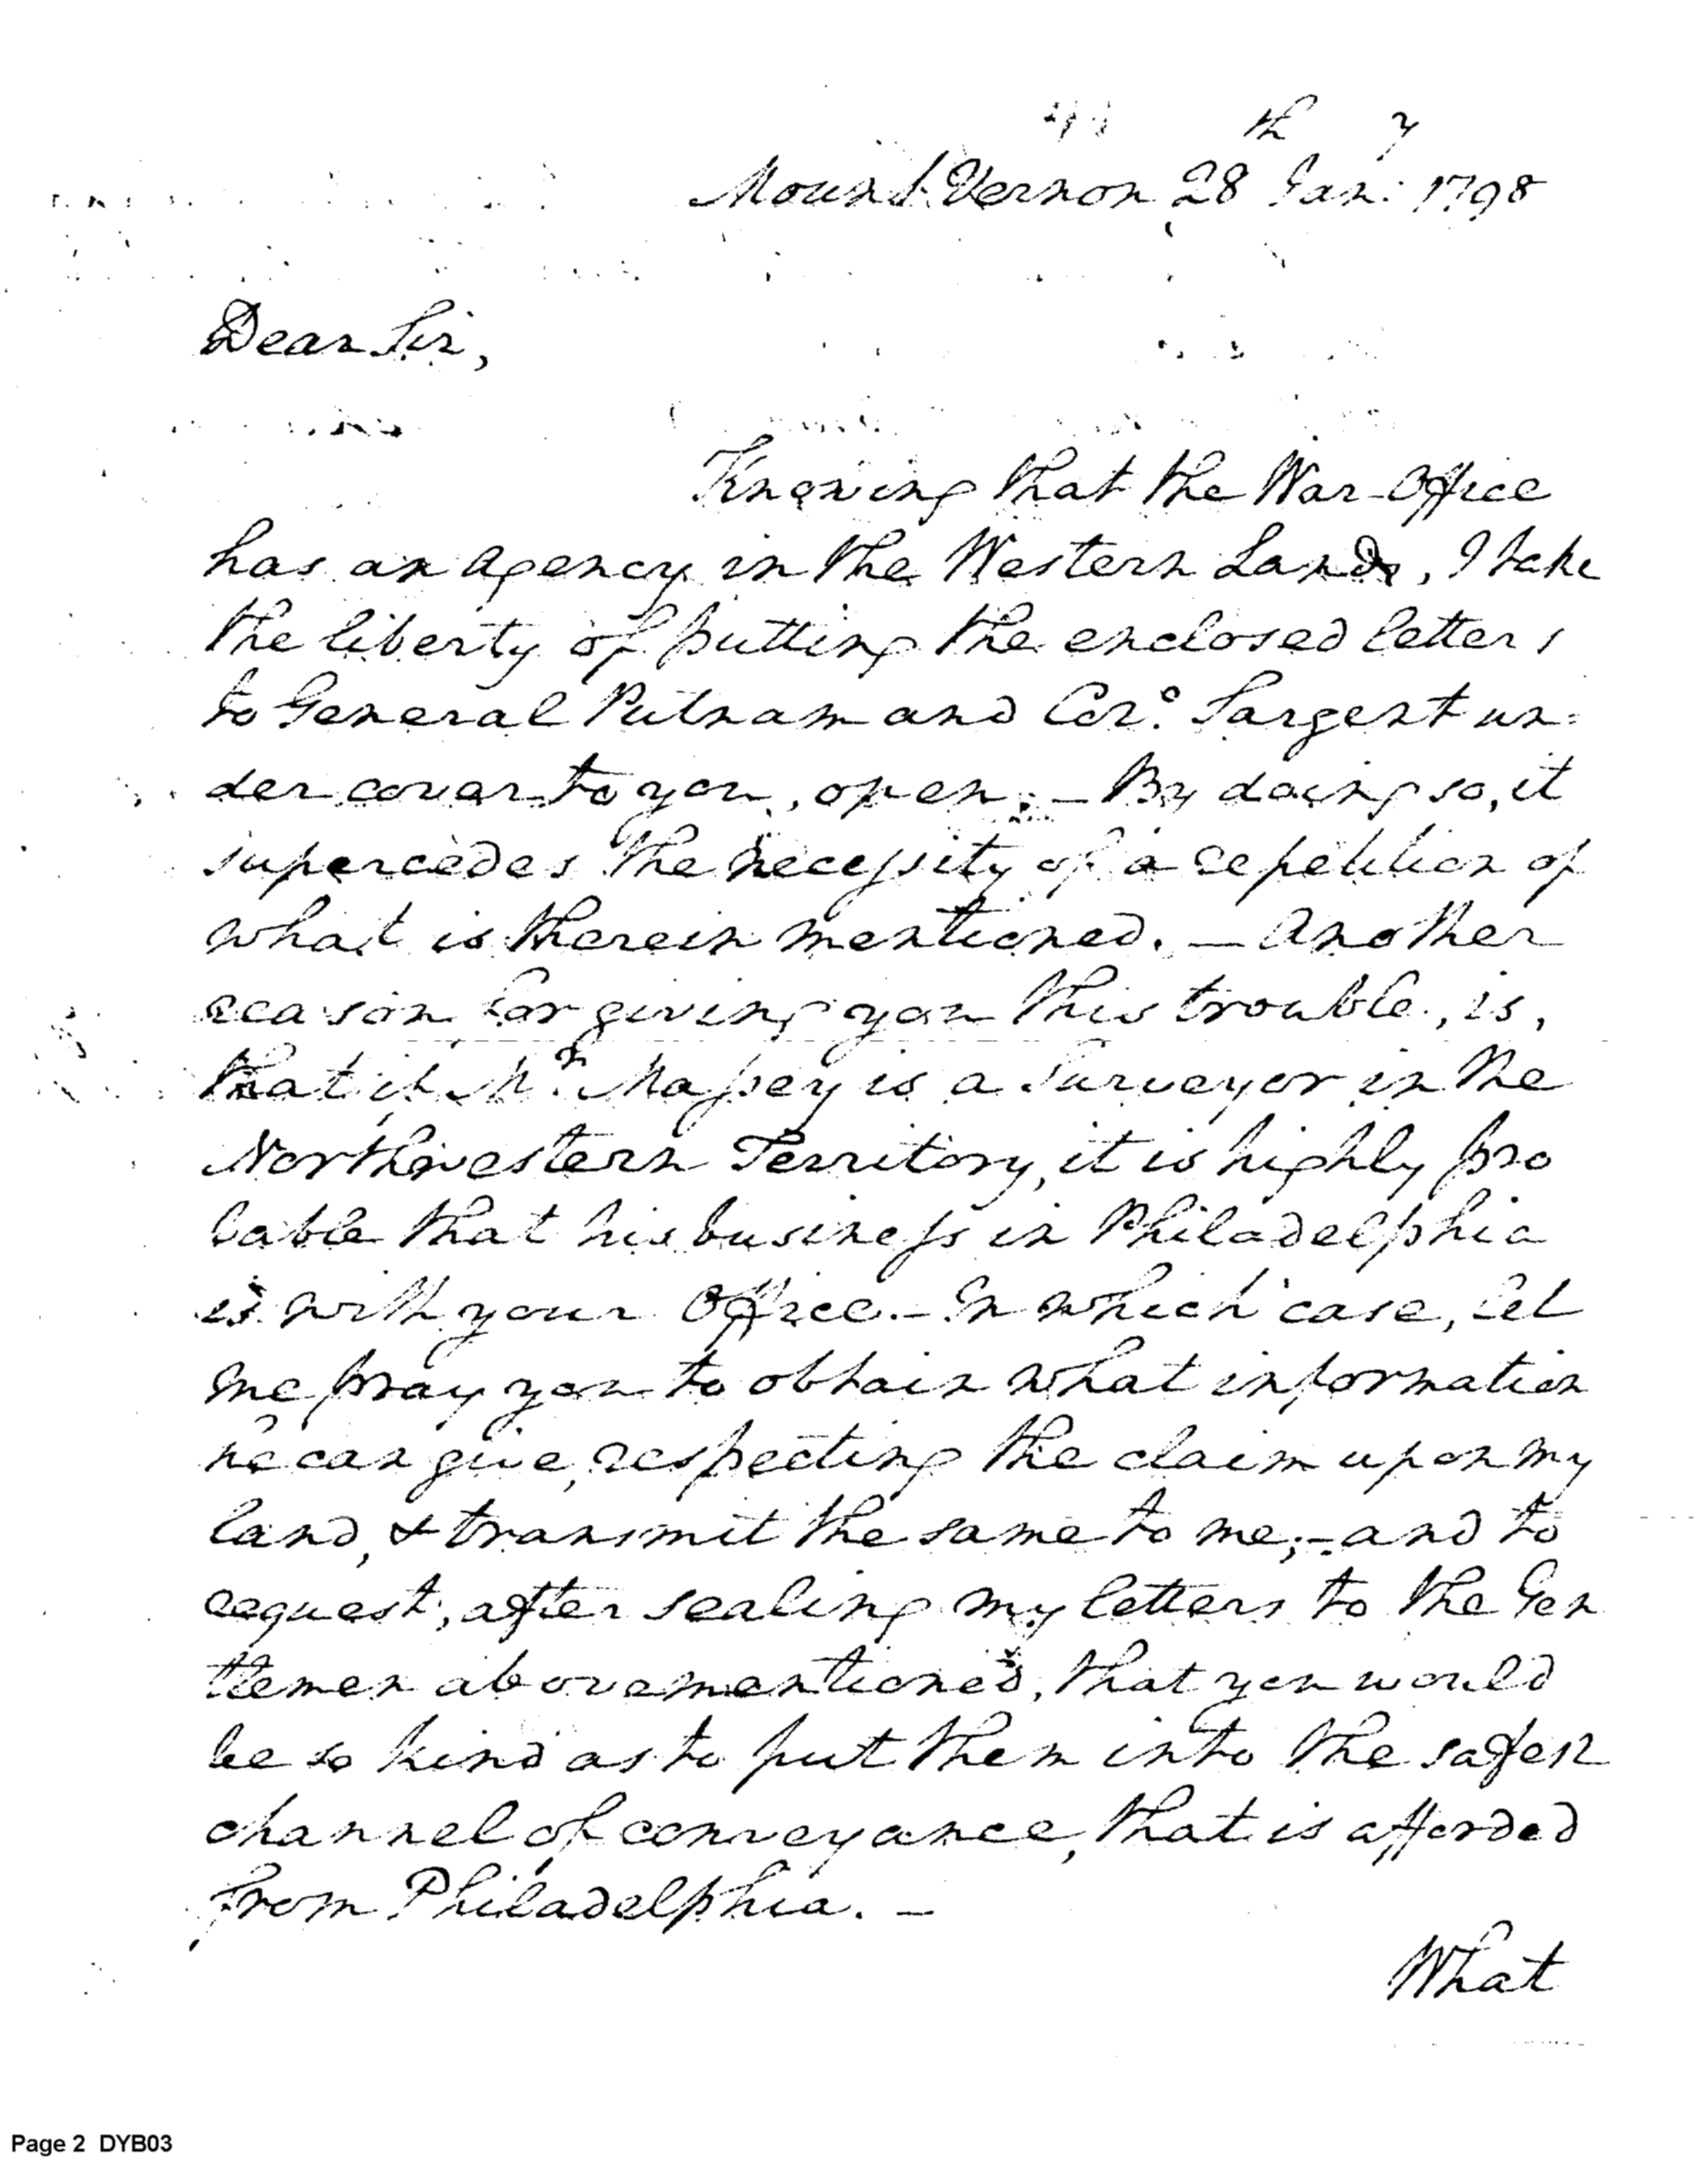 Mount Vernon 28th Jany: 1798
Dear Sir,
Knowing that the War Office
has an agency in the Western Lands, I take
the liberty of putting the enclosed letters
to General Putnam and Colo. Sargent un=
der cover to you, open; — By doing so, it
supercedes the necessity of a repetition of
what is therein mentioned. — Another
reason for giving you this trouble, is,
that if Mr. Massey is a Surveyor in the
Northwestern Territory, it is highly pro
bable that his business in Philadelphia
is with your Office. — In which case, let
me pray you to obtain what information
he can give, respecting the claim upon my
land, & transmit the same to me; — and to
request, after sealing my letters to the Gen
tlemen abovementioned, that you would
be so kind as to put them into the safest
channel of conveyance, that is afforded
from Philadelphia. —
What
Page 2 DYB03